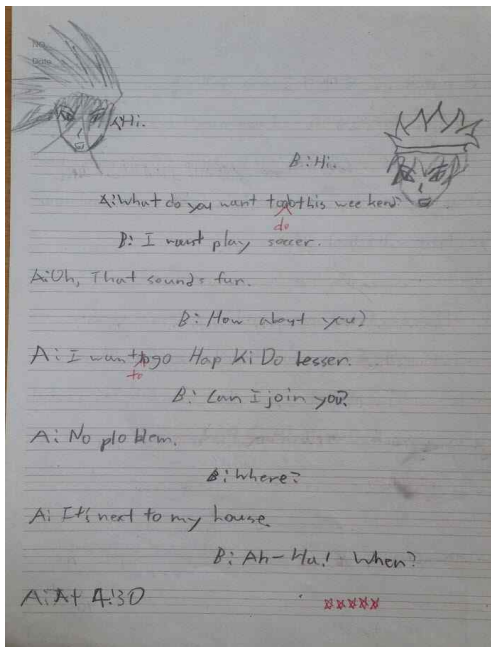 No.
Date
A: Hi.
B: Hi.
A: What do you want to this weekend?
do
B: I want play soccer.
A: Oh, That sounds fun.
B: How about you?
A: I want go Hap Ki Do lesser.
to
B: Can I join you?
A: No ploblem.
B: Where?
A: It's next to my house.
B: Ah-Ha! When?
A: At 4:30